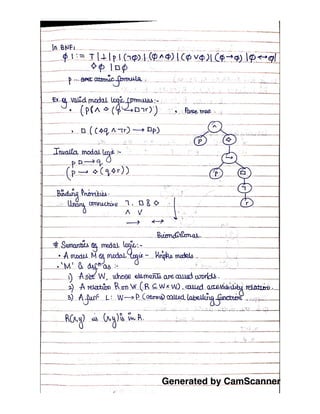 In BNF:
ϕ ::= T | ⊥ | p | (¬ϕ) | (ϕ ∧ ϕ) | (ϕ ∨ ϕ) | (ϕ → ϕ) | ϕ ↔ ϕ |
◇ϕ | □ϕ
p ... atomic formula.
Ex. of valid modal logic formulas :-
• (p ∧ ◇(p → □¬r)) • Parse tree
• □((◇q ∧ ¬r) → □p)
∧
p ◇
→
p □
¬
r
Invalid modal logic :-
p □ → q
(p → ◇(q ◇ r))
Binding Priorities:
Unary connective ¬, □ & ◇
∧ ∨
→ ↔
Biconditional
# Semantics of modal logic :-
• A model M of modal logic - Kripke models
• 'M' is defⁿ as :-
1) A set W, whose elements are called worlds.
2) A relation R on W (R ⊆ W × W), called accessibility relation.
3) A funⁿ L : W → P (atoms) called labelling function.
R(x,y) is (x,y) is in R.
Generated by CamScanner